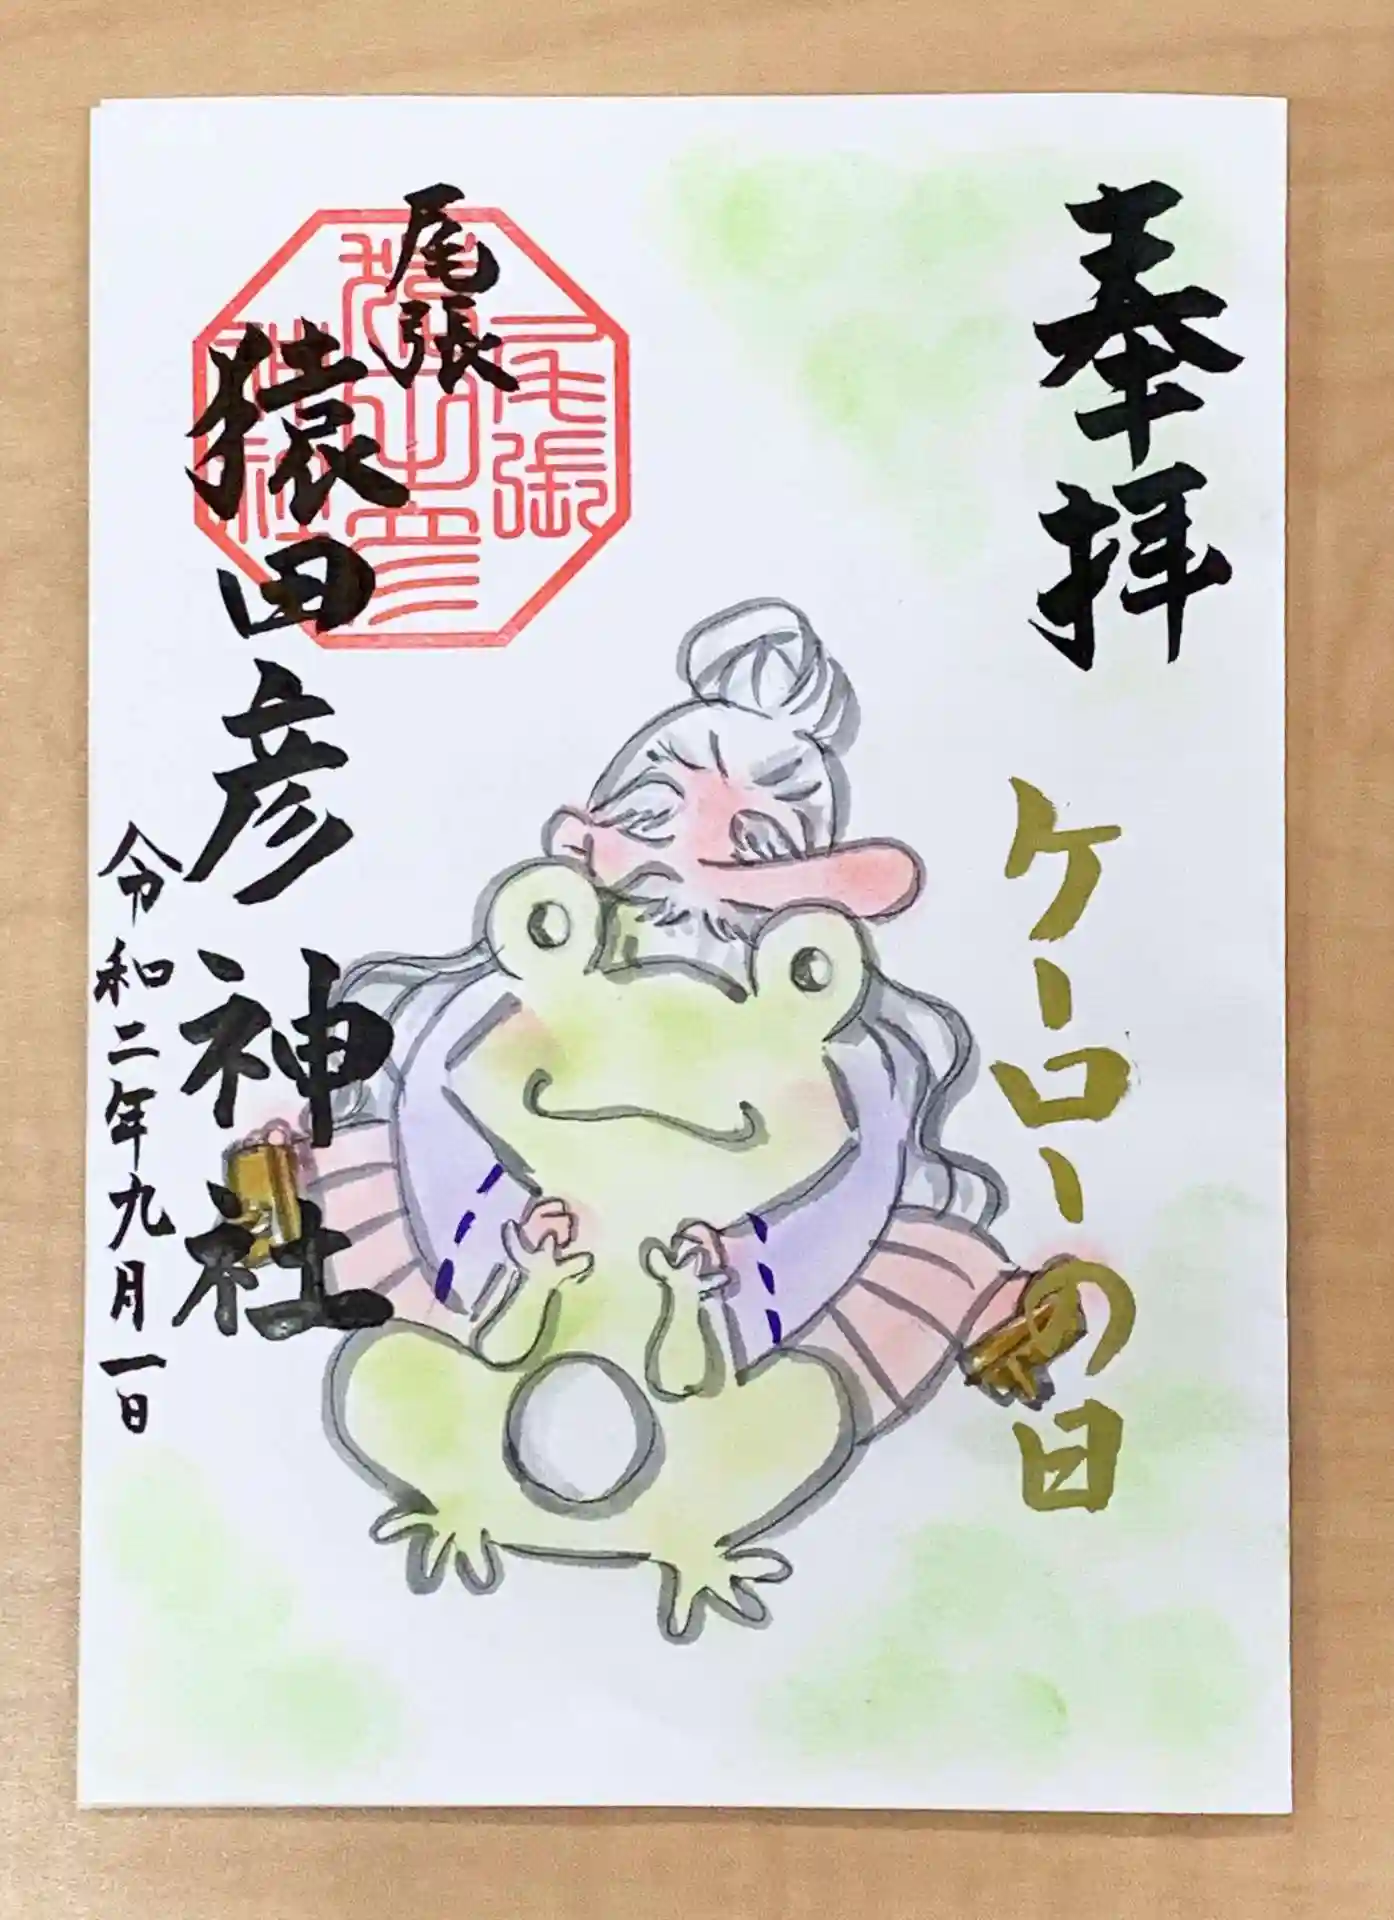 奉拝
ケーローの日
尾張
猿田彦神社
令和二年九月一日
尾張
猿田彦
神社